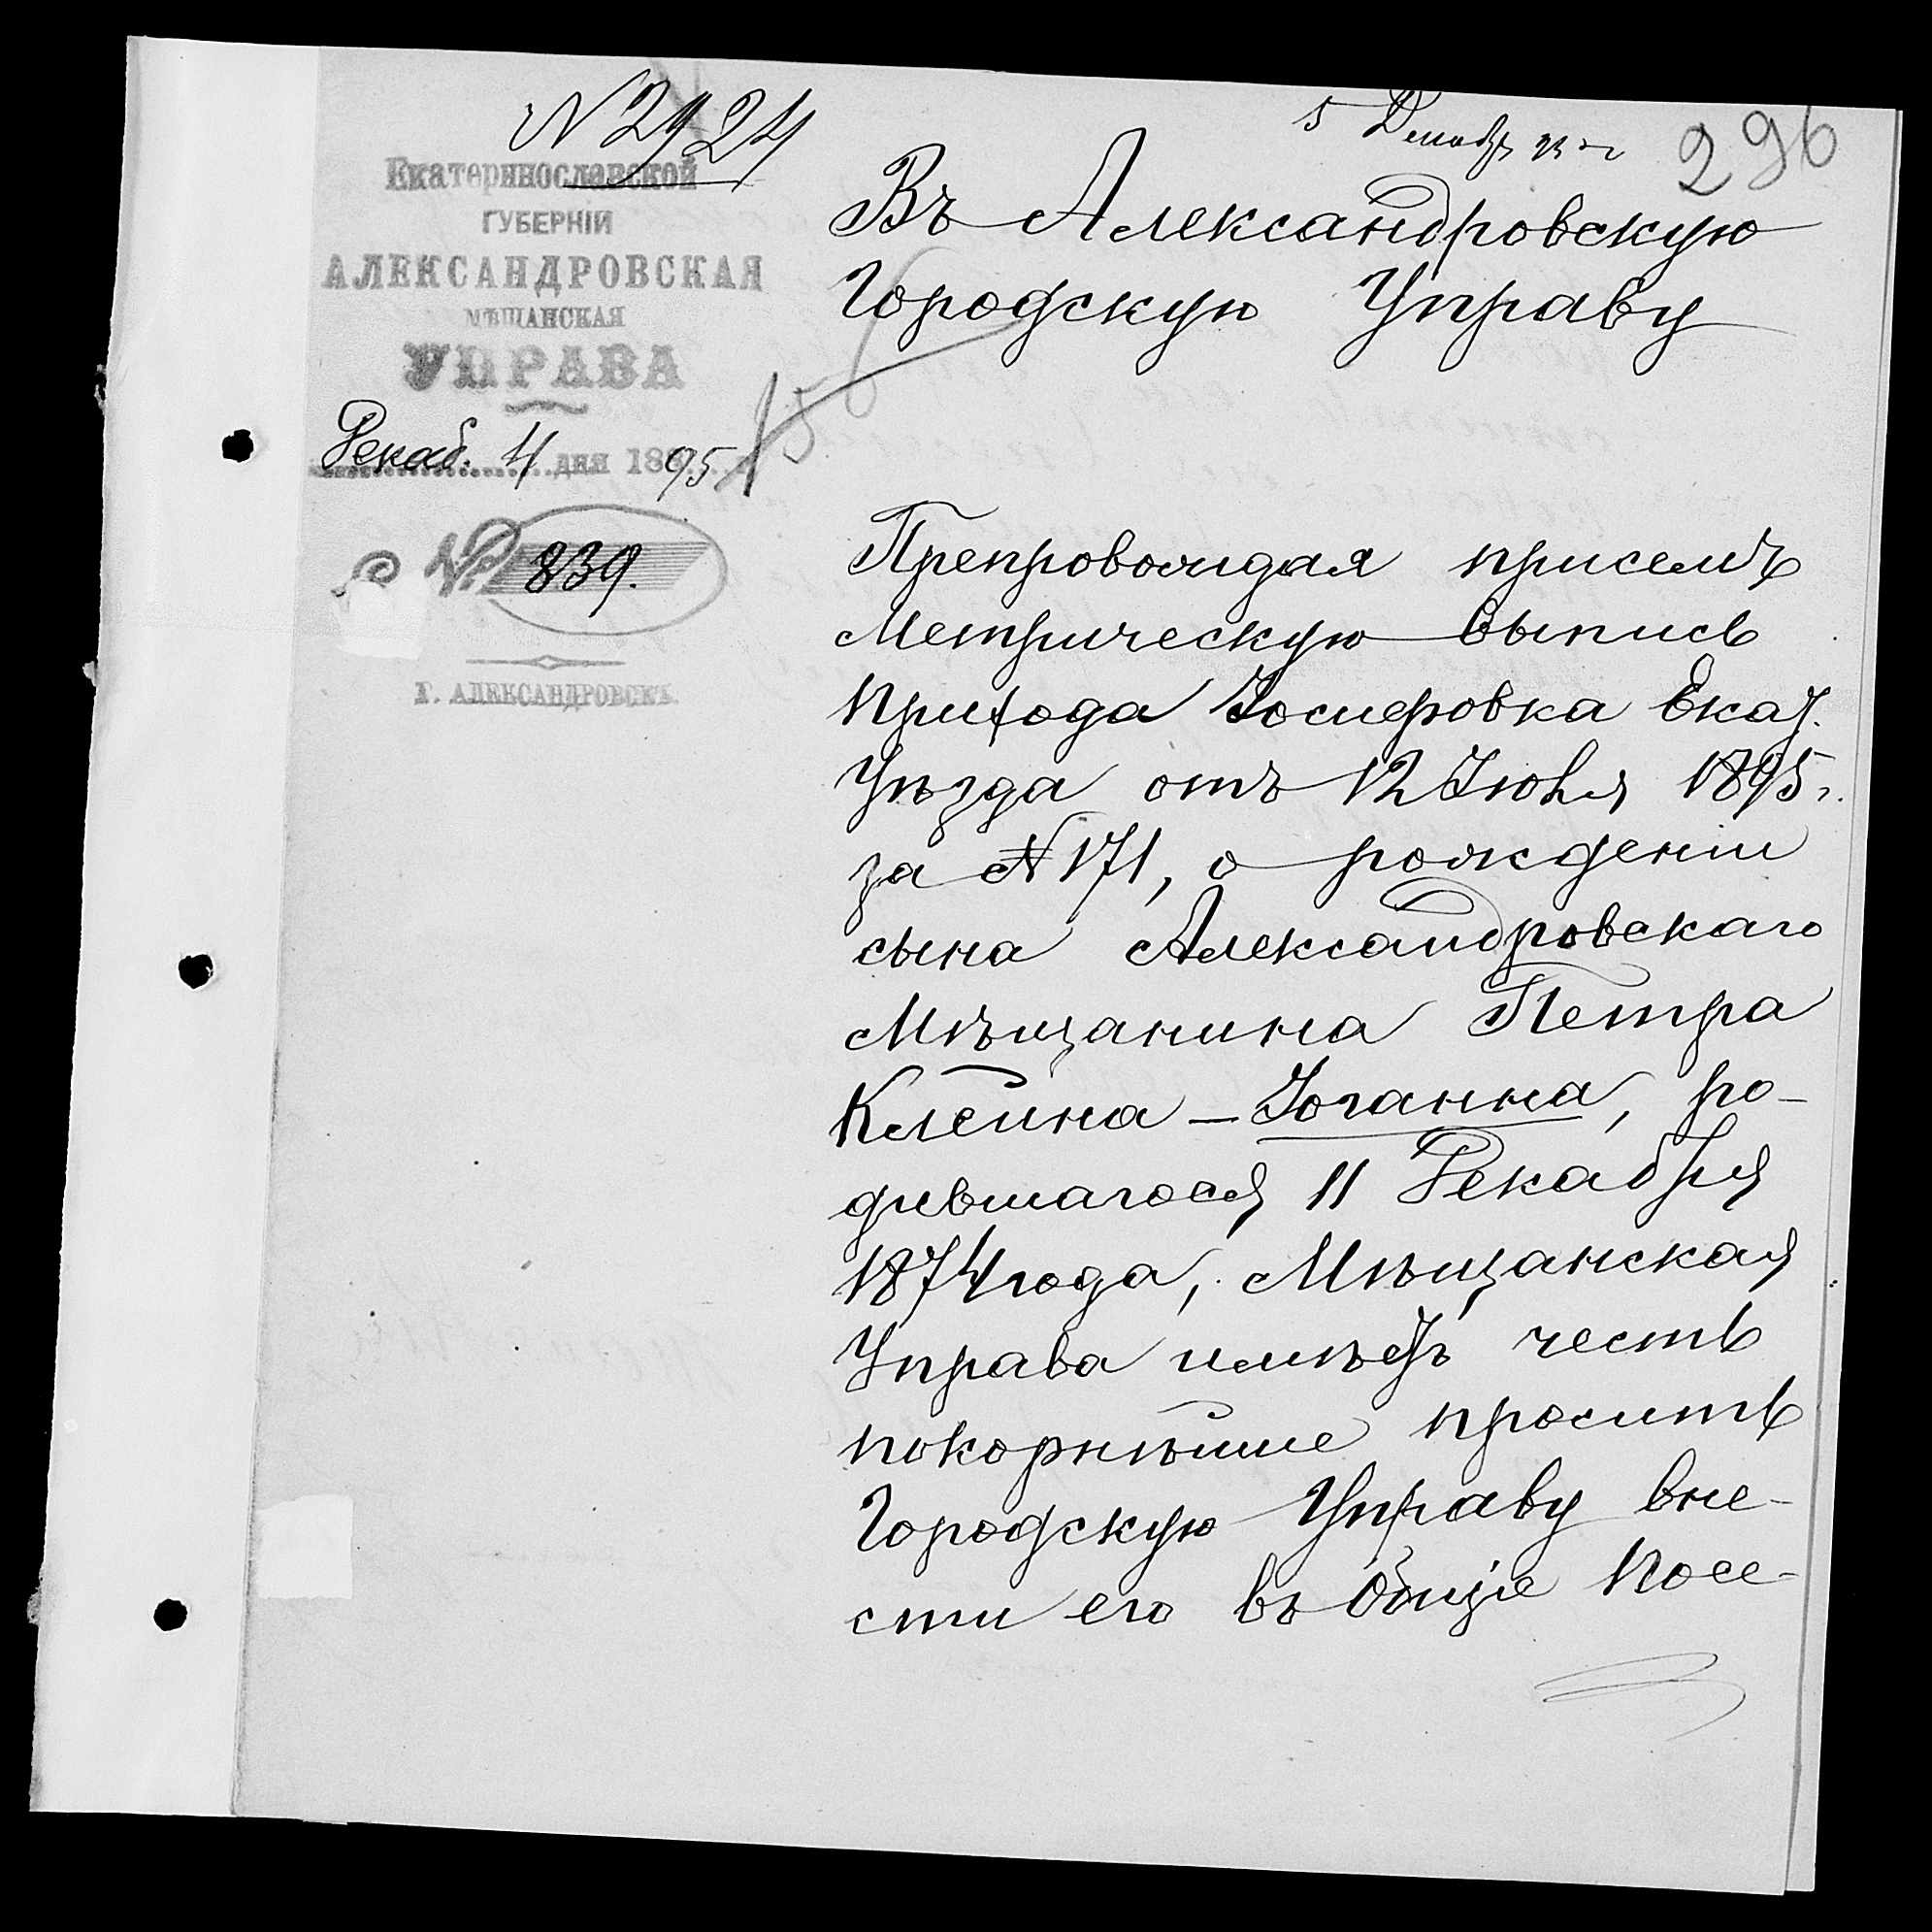 N 2924
Екатеринославской
ГУБЕРНІИ
АЛЕКСАНДРОВСКАЯ
МѢЩАНСКАЯ
УПРАВА
Декаб. 4 дня 1895
№ 839.
Г. АЛЕКСАНДРОВСКЪ.
5 Декабр 95 г
296
Въ Александровскую
Городскую Управу
156
Препровождая присемъ
Метрическую выпись
прихода Іосифовка Екат.
Уѣзда отъ 12 Іюля 1895 г.
за № 171, о рожденіи
сына Александровскаго
Мѣщанина Петра
Клейна - Іоганна, ро-
дившагося 11 Декабря
1874 года, Мѣщанская
Управа имѣетъ честь
покорнѣйше просить
Городскую Управу вне-
сти его въ общіе посе-